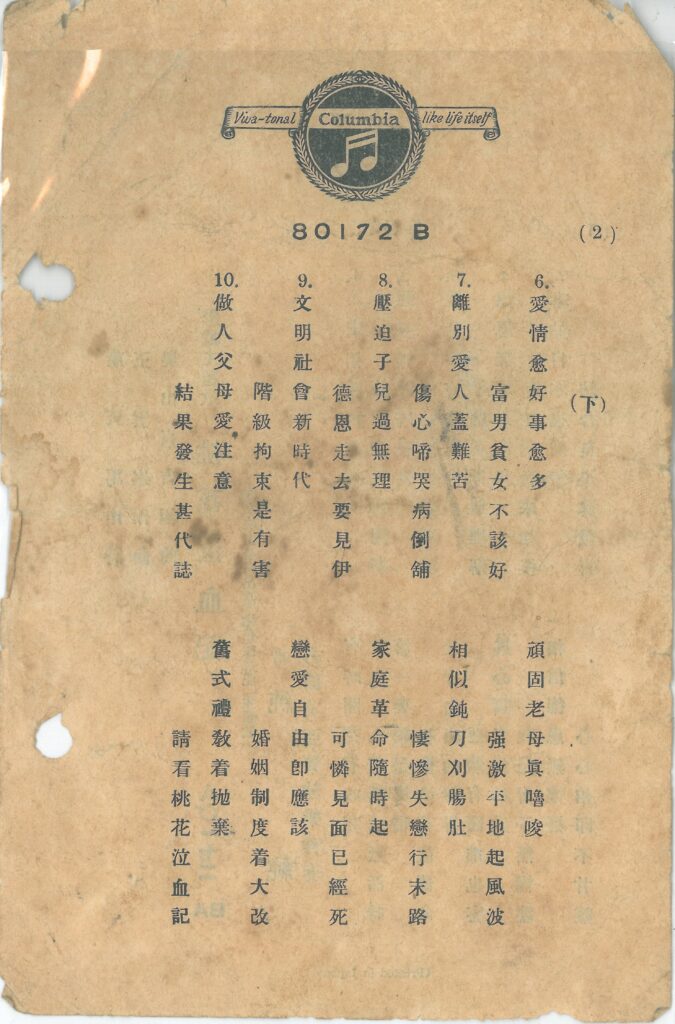 Viva-tonal Columbia like life itself
80172 B
(2)
(下)
6. 愛情愈好事愈多 頑固老母眞嚕唆
富男貧女不該好 强激平地起風波
7. 離別愛人蓋難苦 相似鈍刀刈腸肚
傷心啼哭病倒舖 悽慘失戀行末路
8. 壓迫子兒過無理 家庭革命隨時起
德恩走去要見伊 可憐見面已經死
9. 文明社會新時代 戀愛自由卽應該
階級拘束是有害 婚姻制度着大改
10. 做人父母愛注意 舊式禮敎着拋棄
結果發生甚代誌 請看桃花泣血記